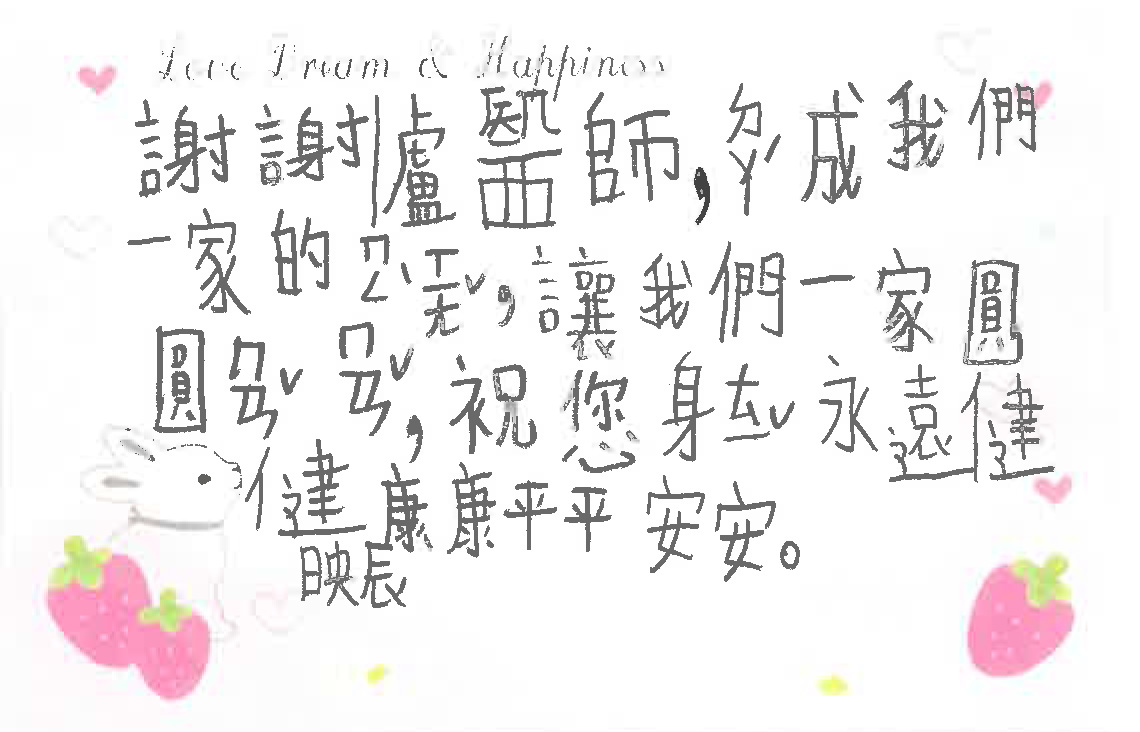 Love Dream & Happiness
謝謝盧醫師,ㄉㄚˊ成我們
一家的ㄇㄥˋㄒㄧㄤˇ,讓我們一家圓
圓ㄇㄢˇㄇㄢˇ,祝您身ㄊㄧˇ永遠健
健康康平平安安。
映辰